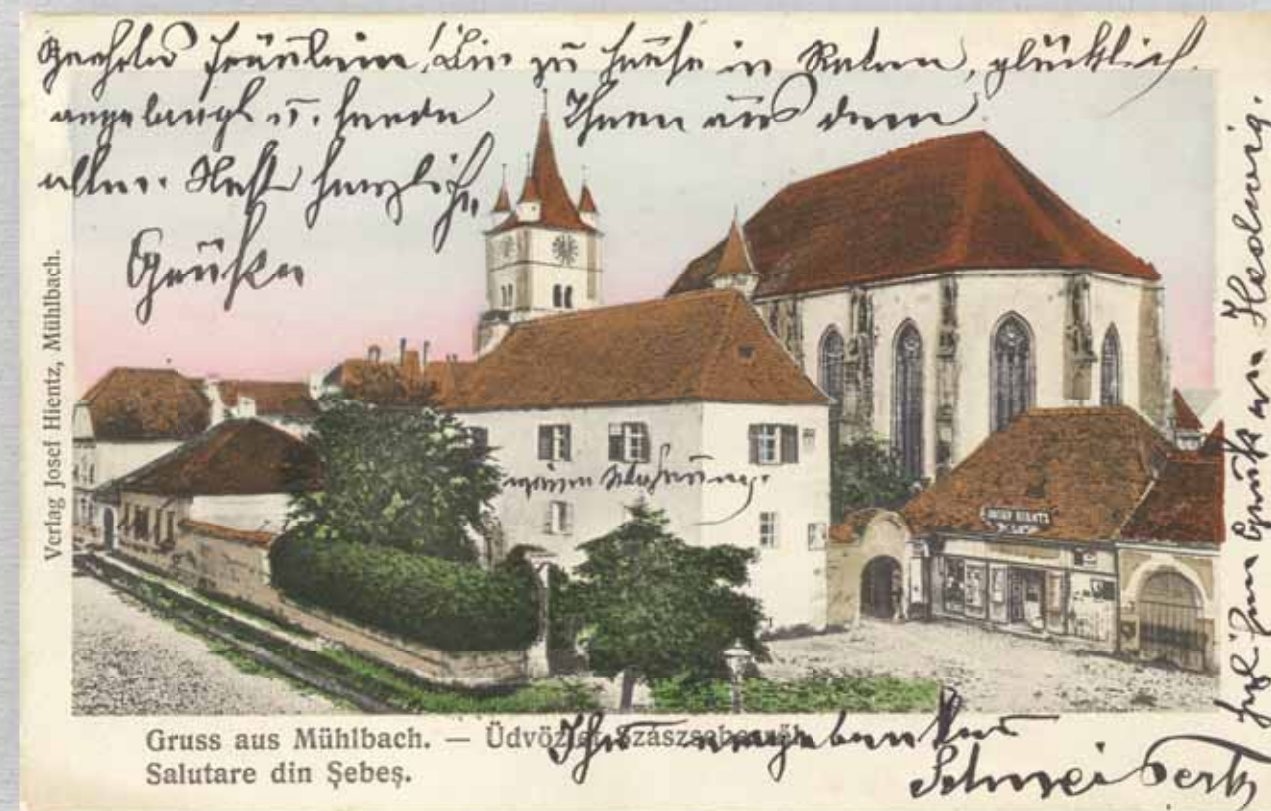 Geehrtes Fräulein! Bin zu Hause in Ratten, glücklich
angelangt u. sende Ihnen aus dem
alten Nest herzliche
Grüße
Verlag Josef Hientz, Mühlbach.
meine Wohnung.
JOSEF HIENTZ
Gruss aus Mühlbach. — Üdvözlet Szászsebesről.
Salutare din Şebeş.
Ihr
Grüße an Hedwig.